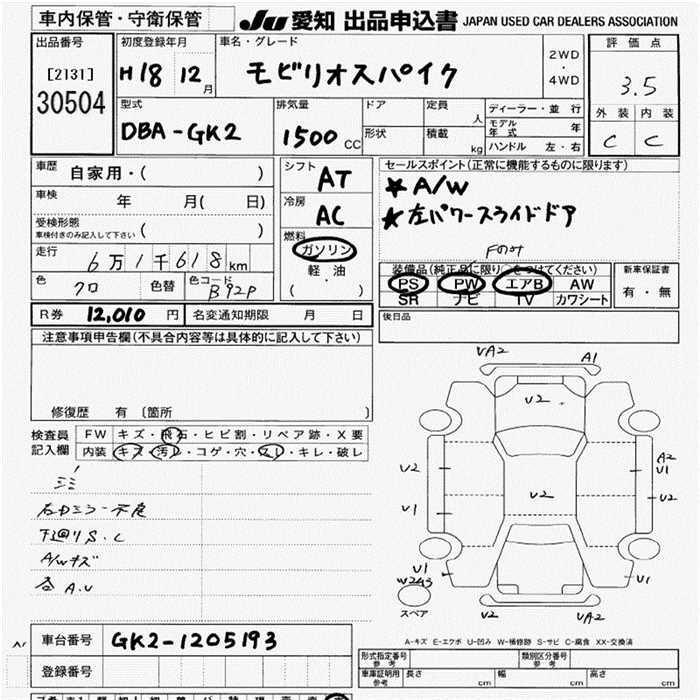 車内保管・守衛保管
JU 愛知 出品申込書 JAPAN USED CAR DEALERS ASSOCIATION
出品番号
[2131]
30504
初度登録年月
H18 12月
車名・グレード
モビリオスパイク
2WD
・
4WD
評価点
3.5
外装 内装
C C
型式
DBA-GK2
排気量
1500 CC
ドア
形状
定員
人
積載
kg
ディーラー・並行
モデル年式 年
ハンドル 左・右
車歴 自家用・( )
車検 年 月( 日)
受検形態
車検付きのみ記入して下さい ( )
走行
6万1千618km
色 クロ 色替 色コード B92P
シフト
AT
冷房
AC
燃料
ガソリン
軽・油
( )
セールスポイント(正常に機能するものに限ります)
★A/W
★左パワースライドドア
Fのみ
装備品(純正品に限り○をつけてください)
PS PW エアB AW
SR ナビ TV カワシート
新車保証書
有・無
R券 12,010 円 名変通知期限 月 日
後日品
注意事項申告欄(不具合内容等は具体的に記入して下さい)
修復歴 有 〔箇所 〕
検査員
記入欄
FW キズ・飛石・ヒビ割・リペア跡・X要
内装 キズ・汚レ・コゲ・穴・スレ・キレ・破レ
下廻りS.C
A/Wキズ
各A.U
VA2 A1
U2
U2
U1
U2
A2
U1
U2
U1
W2 U3
スペア
U1
U2 UA2
A-キズ E-エクボ U-凹み W-補修跡 S-サビ C-腐食 XX-交換済
車台番号 GK2-1205193
登録番号
形式指定番号
参考
類別区分番号
参考
車庫証明用
参考
長さ cm 幅 cm 高さ cm